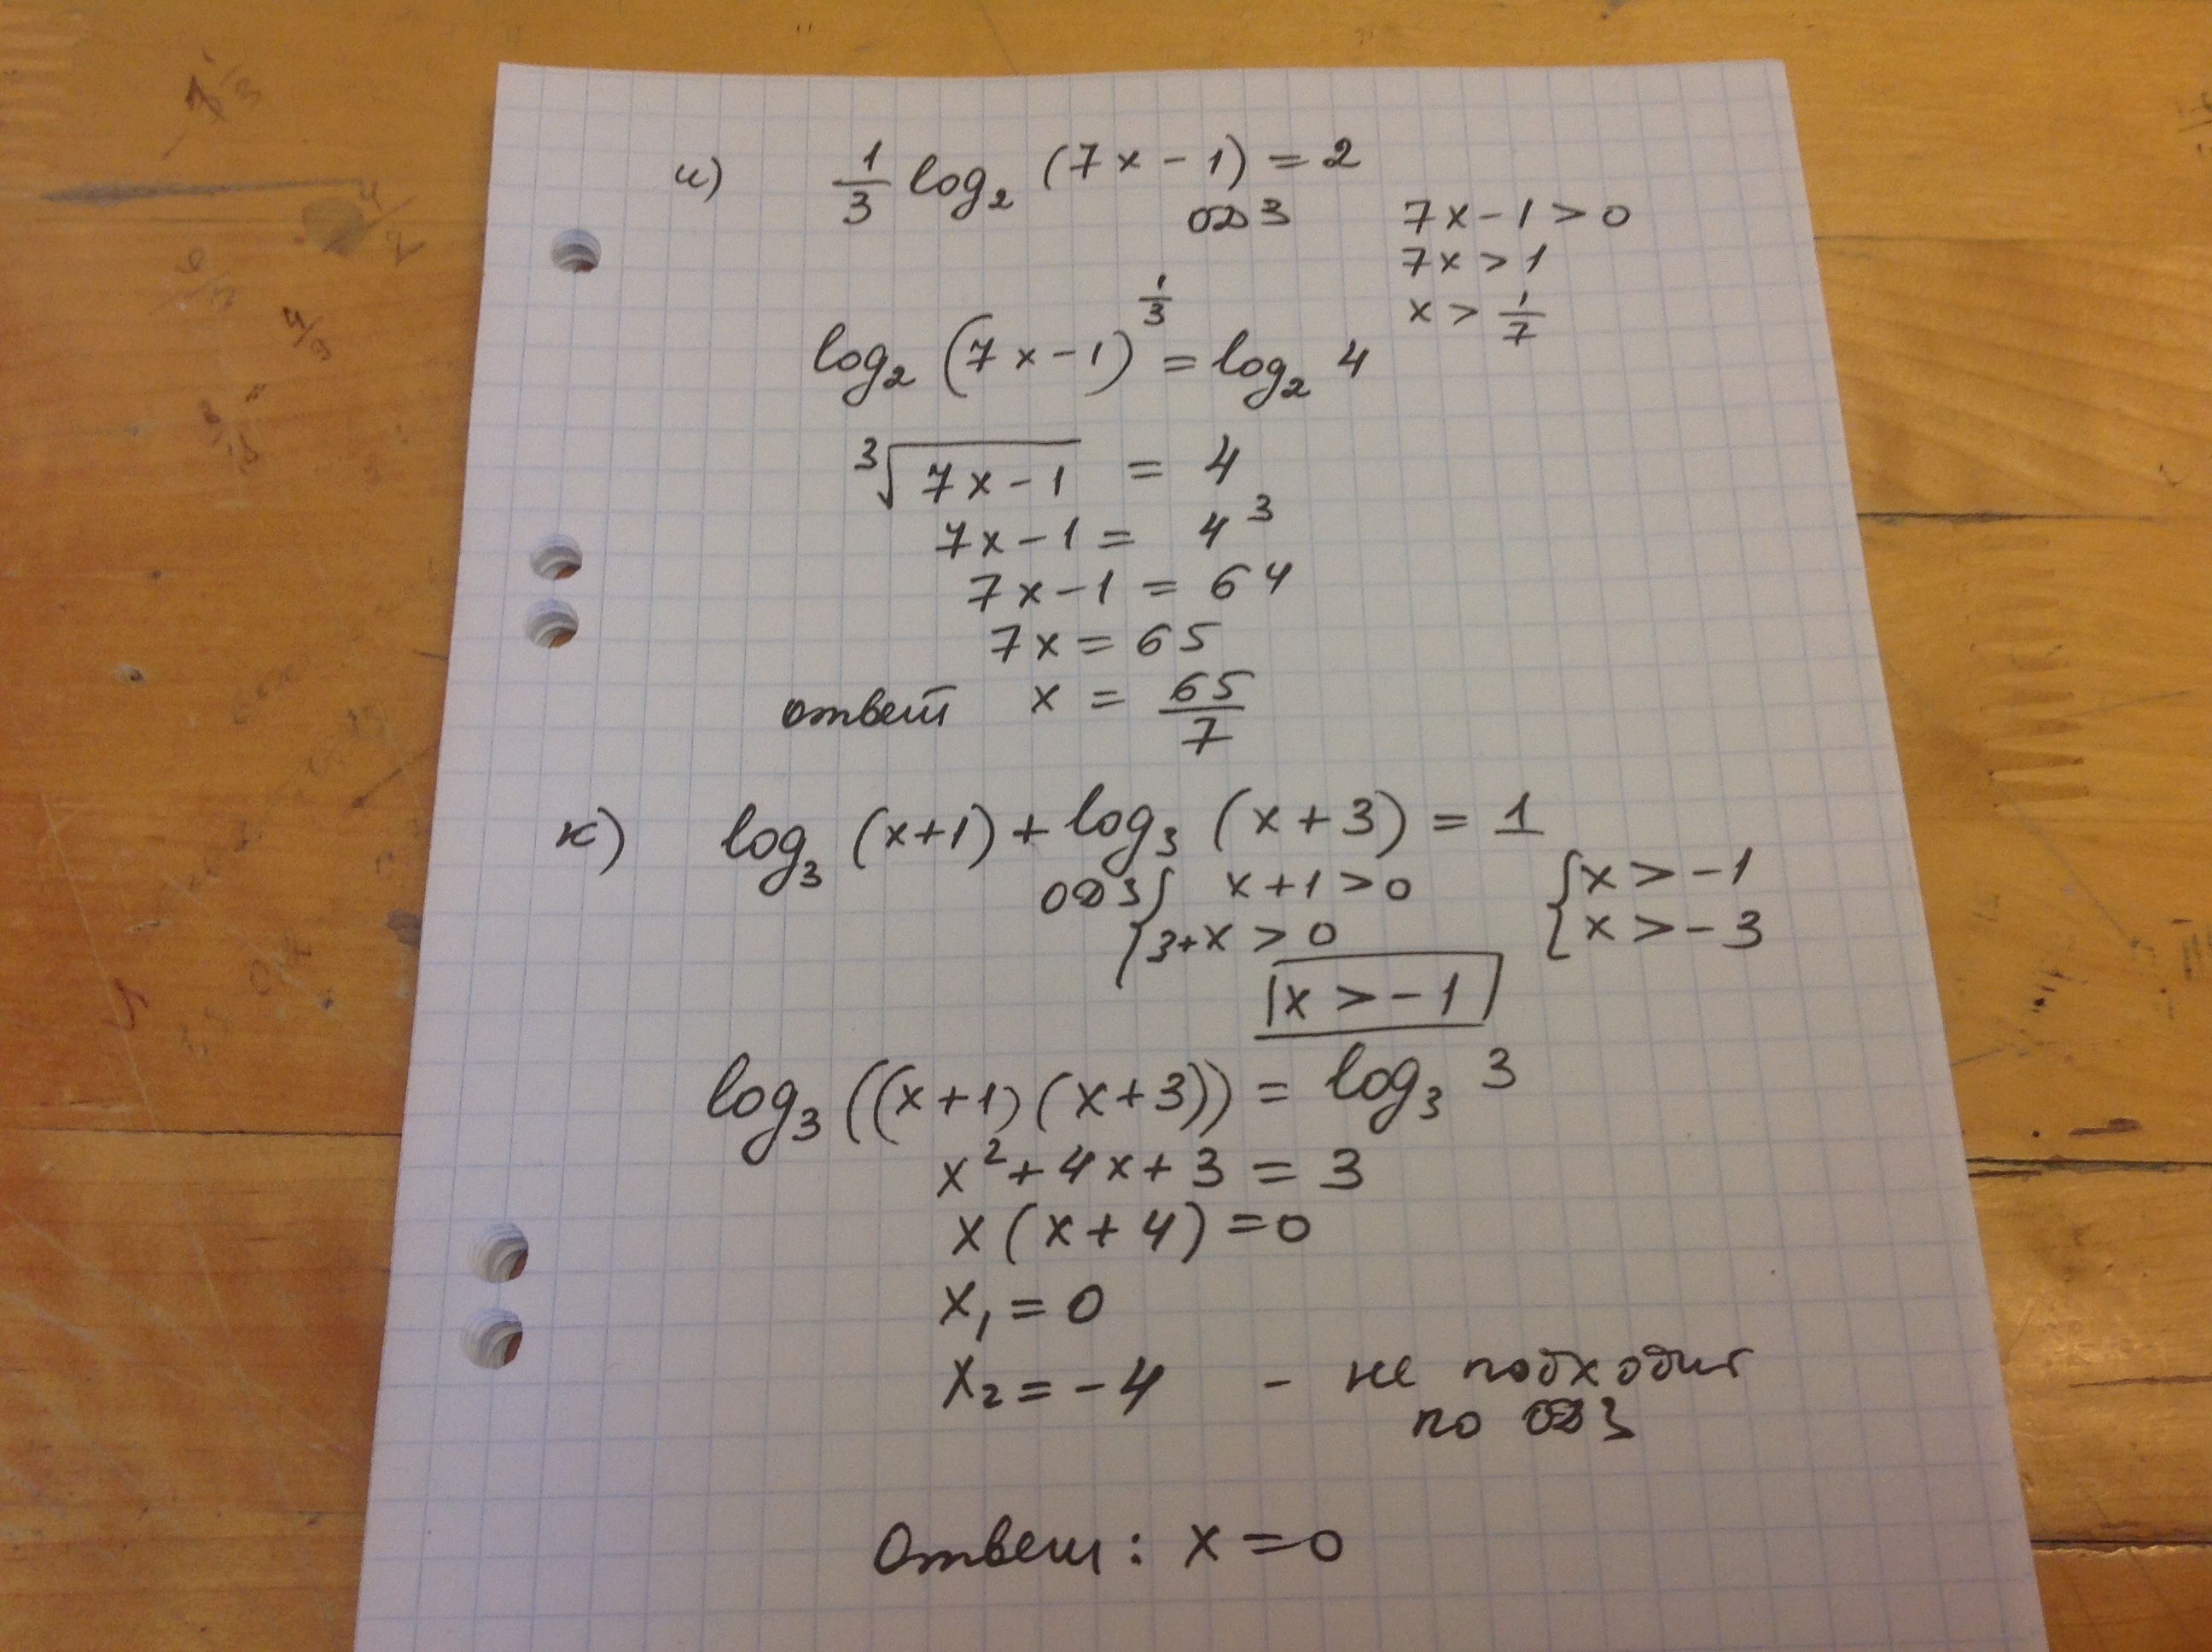 и) 1/3 log₂ (7x − 1) = 2
ОДЗ 7x − 1 > 0
7x > 1
x > 1/7
log₂ (7x − 1)^(1/3) = log₂ 4
∛(7x − 1) = 4
7x − 1 = 4³
7x − 1 = 64
7x = 65
ответ x = 65/7
к) log₃ (x+1) + log₃ (x+3) = 1
ОДЗ { x+1 > 0 { x > −1
{ 3+x > 0 { x > −3
x > −1
log₃ ((x+1)(x+3)) = log₃ 3
x² + 4x + 3 = 3
x (x + 4) = 0
x₁ = 0
x₂ = −4 − не подходит
по ОДЗ
Ответ: x = 0